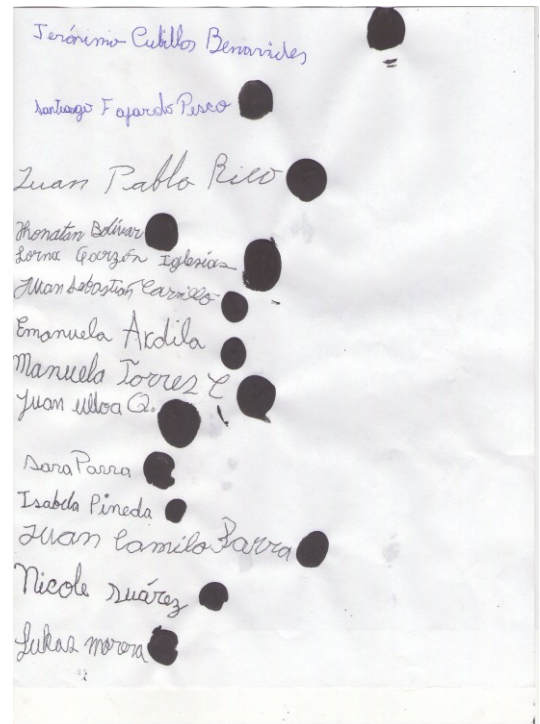 Jerónimo Cubillos Benavides
Santiago Fajardo Pesco
Juan Pablo Rico
Jhonatan Bolívar
Lorna Garzón Iglesias
Juan Sebastián Carrillo
Emanuela Ardila
Manuela Torres C
Juan ulloa Q.
Sara Parra
Isabela Pineda
Juan Camilo Barra
Nicole suárez
Lukas morera